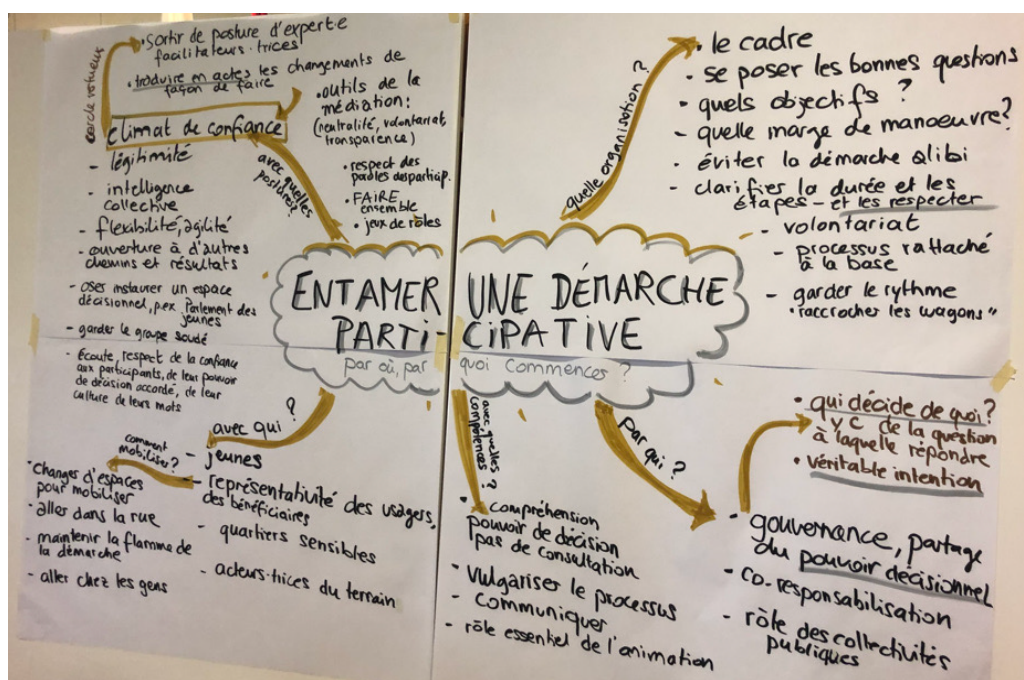 ENTAMER UNE DÉMARCHE
PARTI-CIPATIVE
par où, par quoi commencer ?
avec quelles
postures?
climat de confiance
cercle vertueux
• Sortir de posture d'expert·e
facilitateurs·trices
• traduire en actes les changements de
façon de faire
• outils de la
médiation:
(neutralité, volontariat,
transparence)
• respect des
paroles des particip.
• FAIRE
ensemble
• jeux de rôles
- légitimité
- intelligence
collective
- flexibilité, agilité
- ouverture à d'autres
chemins et résultats
- oser instaurer un espace
décisionnel, p.ex. Parlement des
jeunes
- garder le groupe soudé
- écoute, respect de la confiance
aux participants, de leur pouvoir
de décision accordé, de leur
culture de leurs mots
quelle organisation ?
• le cadre
• se poser les bonnes questions
• quels objectifs ?
- quelle marge de manoeuvre?
- éviter la démarche alibi
- clarifier la durée et les
étapes - et les respecter
- volontariat
- processus rattaché
à la base
- garder le rythme
"raccrocher les wagons"
avec qui ?
- jeunes
- représentativité des usagers,
des bénéficiaires
- quartiers sensibles
- acteurs·trices du terrain
comment
mobiliser?
• Changer d'espaces
pour mobiliser
- aller dans la rue
- maintenir la flamme de
la démarche
- aller chez les gens
avec quelles
compétences ?
• compréhension
pouvoir de décision
pas de consultation
- vulgariser le processus
- communiquer
- rôle essentiel de l'animation
par qui ?
• gouvernance, partage
du pouvoir décisionnel
- co-responsabilisation
- rôle des collectivités
publiques
• qui décide de quoi?
y c de la question
à laquelle répondre
• véritable intention